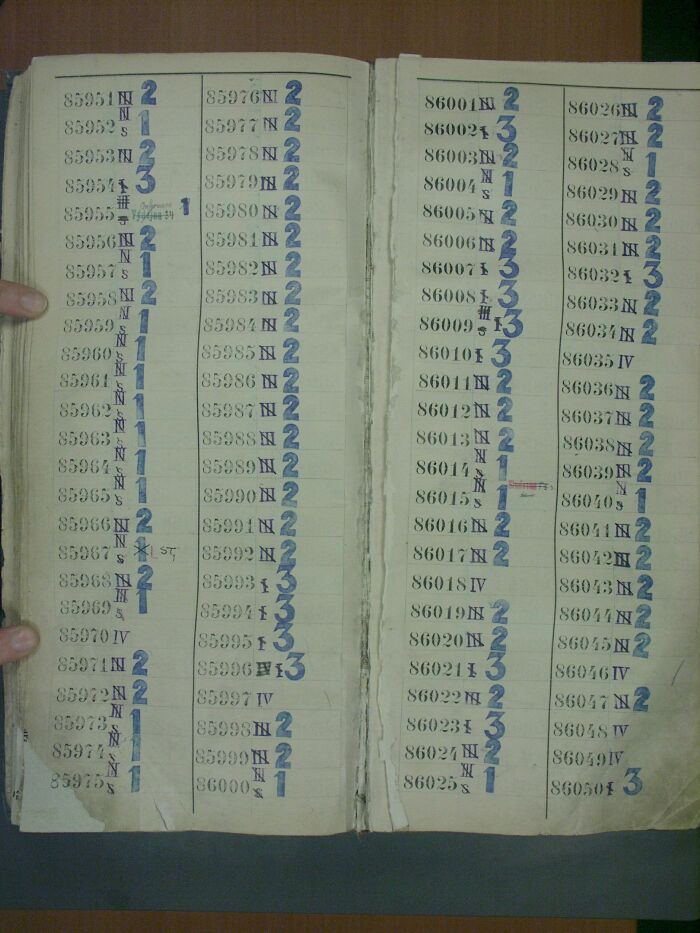 85951 2
85952 S 1
85953 2
85954 I 3
85955 S 1
85956 2
85957 S 1
85958 2
85959 S 1
85960 S 1
85961 S 1
85962 S 1
85963 S 1
85964 S 1
85965 S 1
85966 2
85967 S 1 1 ST,
85968 2
85969 S 1
85970 IV
85971 2
85972 2
85973 S 1
85974 S 1
85975 S 1
85976 2
85977 2
85978 2
85979 2
85980 2
85981 2
85982 2
85983 2
85984 2
85985 2
85986 2
85987 2
85988 2
85989 2
85990 2
85991 2
85992 2
85993 I 3
85994 I 3
85995 I 3
85996 I 3
85997 IV
85998 2
85999 2
86000 S 1
86001 2
86002 I 3
86003 2
86004 S 1
86005 2
86006 2
86007 I 3
86008 I 3
86009 S I 3
86010 I 3
86011 2
86012 2
86013 2
86014 S 1
86015 S 1
86016 2
86017 2
86018 IV
86019 2
86020 2
86021 I 3
86022 2
86023 I 3
86024 2
86025 S 1
86026 2
86027 2
86028 S 1
86029 2
86030 2
86031 2
86032 I 3
86033 2
86034 2
86035 IV
86036 2
86037 2
86038 2
86039 2
86040 S 1
86041 2
86042 2
86043 2
86044 2
86045 2
86046 IV
86047 2
86048 IV
86049 IV
86050 I 3